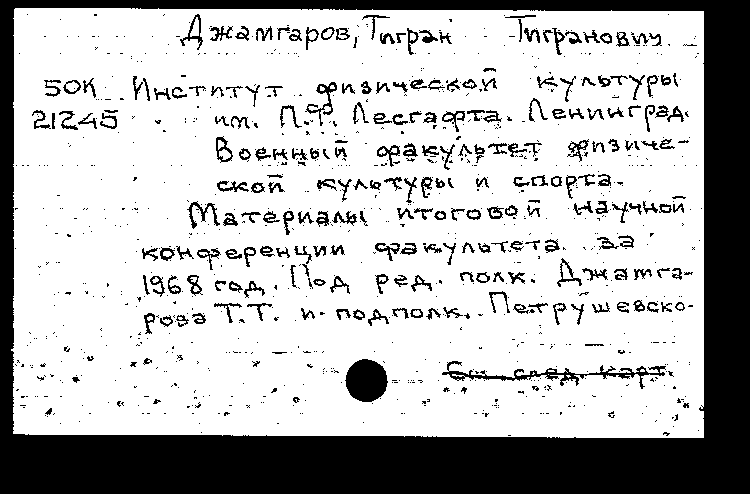 Джамгаров, Тигран Тигранович
50К Институт физической культуры
21245 им. П.Ф. Лесгафта. Ленинград.
Военный факультет физиче-
ской культуры и спорта.
Материалы итоговой научной
конференции факультета за
1968 год. Под ред. полк. Джамга-
рова Т.Т. и подполк. Петрушевско-
См. след. карт.